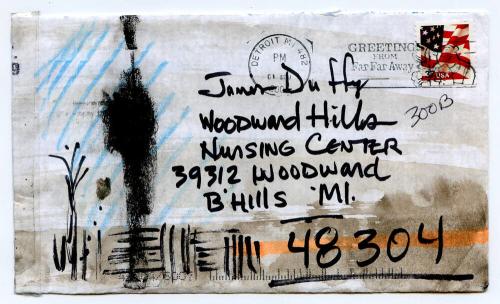 DETROIT MI 482
PM
GREETINGS
FROM
Far Far Away
USA
James Duffy
300B
Woodward Hills
Nursing Center
39312 Woodward
B'Hills MI.
48304